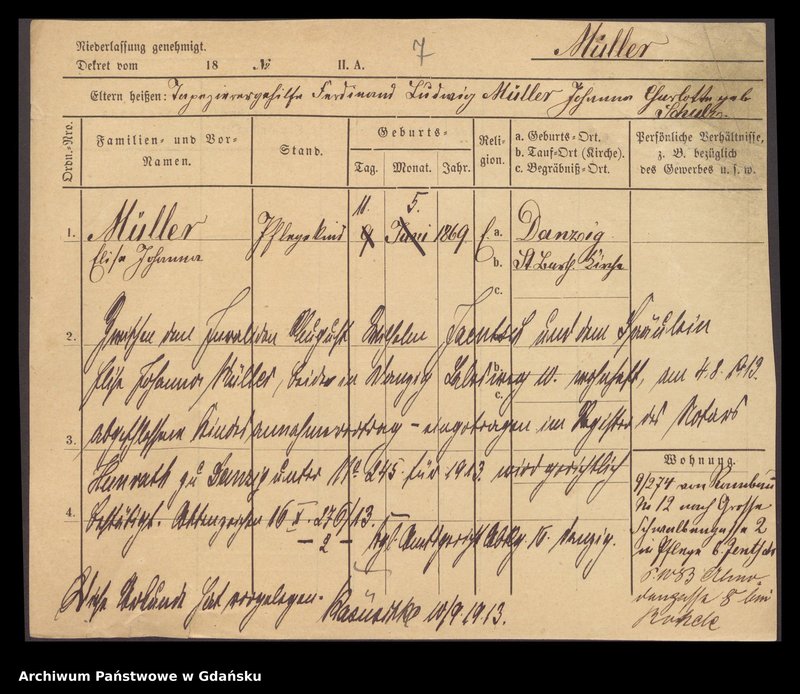 Niederlassung genehmigt.
Dekret vom 18 № II. A.
7
Müller
Eltern heißen: Tapezierergehilfe Ferdinand Ludwig Müller Johanna Charlotte geb.
Schulz.
Ordn.-Nro.
Familien- und Vor-
Namen.
Stand.
Geburts-
Tag.
Monat.
Jahr.
Reli-
gion.
a. Geburts-Ort.
b. Tauf-Ort (Kirche).
c. Begräbniß-Ort.
Persönliche Verhältnisse,
z. B. bezüglich
des Gewerbes u. s. w.
11. 5.
1. Müller Pflegekind 9 Juni 1869 a. Danzig
Elise Johanna b. St Barth. Kirche
c.
2. Zwischen dem Invaliden August Wilhelm und dem Fräulein
Elise Johanna Müller, beide in Danzig wohnhaft, am 4. 8. 1913.
b.
c.
abgeschlossene Kindesannahmevertrag – eingetragen im Register des Notars
3.
zu Danzig unter No 245 für 1913. wird gerichtlich
4. bestätigt. Aktenzeichen 16 X. 276/13.
– 2 –
Kgl. Amtsgericht Abtlg. 16. Danzig.
Diese Urkunde hat vorgelegen.
10/9 1913.
Wohnung.
9/2 74 von Rambau
No 12 nach Grosse
Schwalbengasse 2
in Pflege b. Jentsch
gasse 8 bei
Archiwum Państwowe w Gdańsku